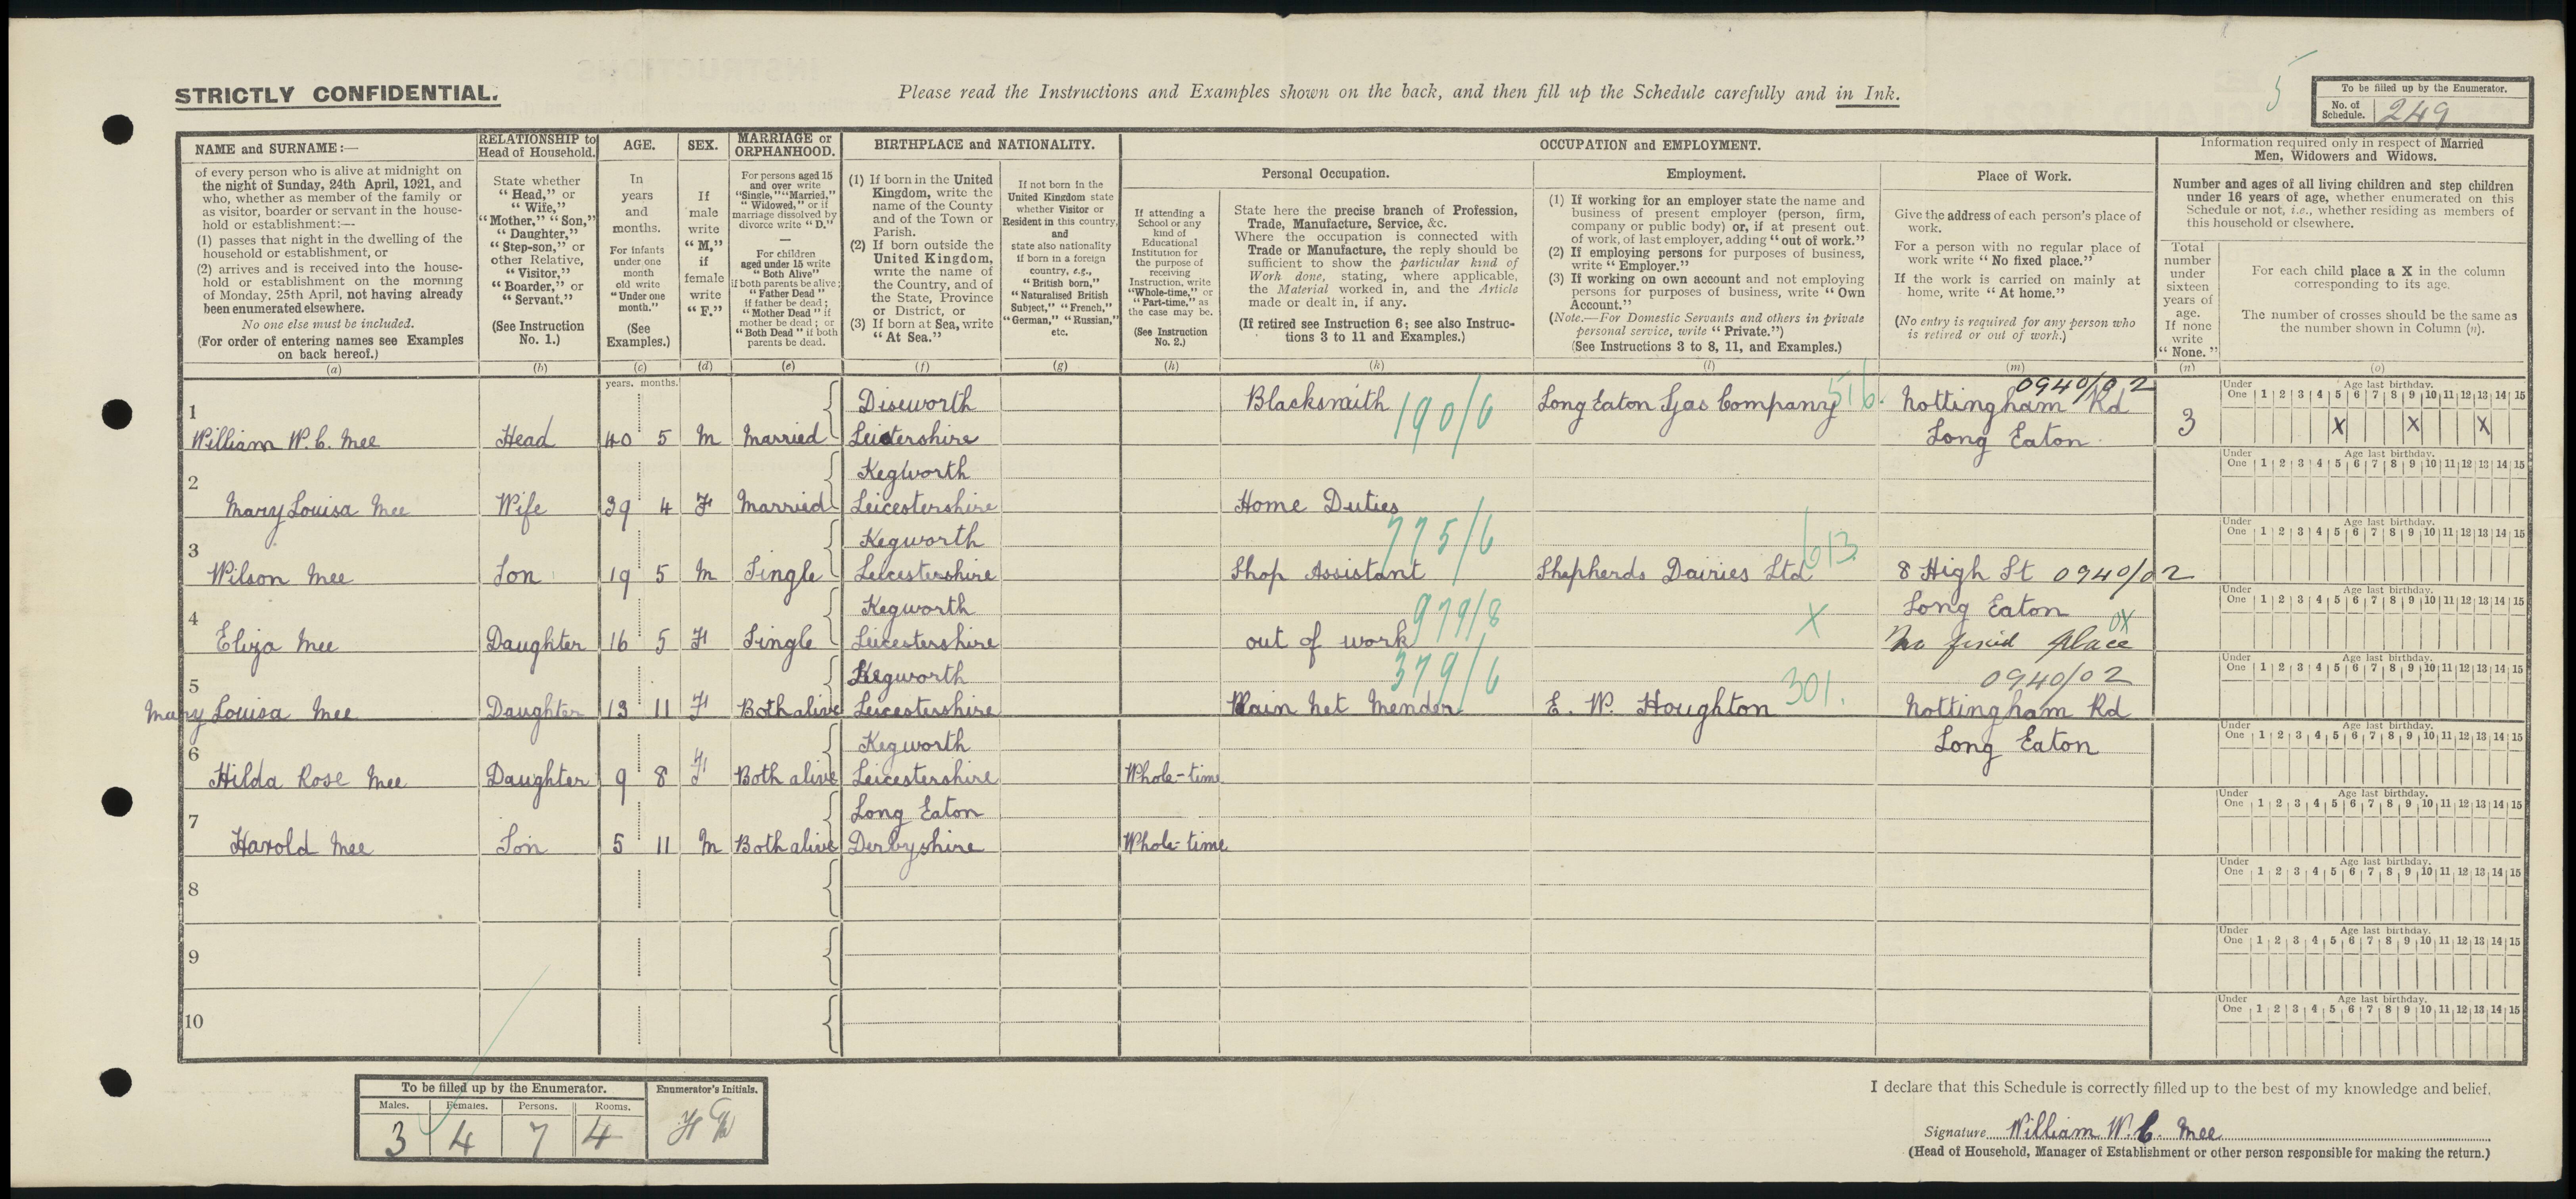 STRICTLY CONFIDENTIAL.
Please read the Instructions and Examples shown on the back, and then fill up the Schedule carefully and in Ink.
5
To be filled up by the Enumerator.
No. of Schedule. 249
NAME and SURNAME:—
of every person who is alive at midnight on
the night of Sunday, 24th April, 1921, and
who, whether as member of the family or
as visitor, boarder or servant in the house-
hold or establishment:—
(1) passes that night in the dwelling of the
household or establishment, or
(2) arrives and is received into the house-
hold or establishment on the morning
of Monday, 25th April, not having already
been enumerated elsewhere.
No one else must be included.
(For order of entering names see Examples
on back hereof.)
(a)
RELATIONSHIP to
Head of Household.
State whether
"Head," or
"Wife,"
"Mother," "Son,"
"Daughter,"
"Step-son," or
other Relative,
"Visitor,"
"Boarder," or
"Servant."
(See Instruction
No. 1.)
(b)
AGE.
In
years
and
months.
For infants
under one
month
old write
"Under one
month."
(See
Examples.)
(c)
SEX.
If
male
write
"M,"
if
female
write
"F."
(d)
MARRIAGE or
ORPHANHOOD.
For persons aged 15
and over write
"Single," "Married,"
"Widowed," or if
marriage dissolved by
divorce write "D."
—
For children
aged under 15 write
"Both Alive"
if both parents be alive;
"Father Dead"
if father be dead;
"Mother Dead" if
mother be dead; or
"Both Dead" if both
parents be dead.
(e)
BIRTHPLACE and NATIONALITY.
(1) If born in the United
Kingdom, write the
name of the County
and of the Town or
Parish.
(2) If born outside the
United Kingdom,
write the name of
the Country, and of
the State, Province
or District, or
(3) If born at Sea, write
"At Sea."
(f)
If not born in the
United Kingdom state
whether Visitor or
Resident in this country,
and
state also nationality
if born in a foreign
country, e.g.,
"British born,"
"Naturalised British
Subject," "French,"
"German," "Russian,"
etc.
(g)
OCCUPATION and EMPLOYMENT.
If attending a
School or any
kind of
Educational
Institution for
the purpose of
receiving
Instruction, write
"Whole-time," or
"Part-time," as
the case may be.
(See Instruction
No. 2.)
(h)
Personal Occupation.
State here the precise branch of Profession,
Trade, Manufacture, Service, &c.
Where the occupation is connected with
Trade or Manufacture, the reply should be
sufficient to show the particular kind of
Work done, stating, where applicable,
the Material worked in, and the Article
made or dealt in, if any.
(If retired see Instruction 6; see also Instruc-
tions 3 to 11 and Examples.)
(k)
Employment.
(1) If working for an employer state the name and
business of present employer (person, firm,
company or public body) or, if at present out
of work, of last employer, adding "out of work."
(2) If employing persons for purposes of business,
write "Employer."
(3) If working on own account and not employing
persons for purposes of business, write "Own
Account."
(Note.—For Domestic Servants and others in private
personal service, write "Private.")
(See Instructions 3 to 8, 11, and Examples.)
(l)
Place of Work.
Give the address of each person's place of
work.
For a person with no regular place of
work write "No fixed place."
If the work is carried on mainly at
home, write "At home."
(No entry is required for any person who
is retired or out of work.)
(m)
Information required only in respect of Married
Men, Widowers and Widows.
Number and ages of all living children and step children
under 16 years of age, whether enumerated on this
Schedule or not, i.e., whether residing as members of
this household or elsewhere.
Total
number
under
sixteen
years of
age.
If none
write
"None."
(n)
For each child place a X in the column
corresponding to its age.
The number of crosses should be the same as
the number shown in Column (n).
(o)
years. months.
Under One Age last birthday. 1 2 3 4 5 6 7 8 9 10 11 12 13 14 15
1 Diseworth Blacksmith 190/6 Long Eaton Gas Company 516. Nottingham Rd 0940/02
William W. C. Mee Head 40 5 M Married Leicestershire Long Eaton 3 X X X
Under One Age last birthday. 1 2 3 4 5 6 7 8 9 10 11 12 13 14 15
2 Kegworth
Mary Louisa Mee Wife 39 4 F Married Leicestershire Home Duties
Under One Age last birthday. 1 2 3 4 5 6 7 8 9 10 11 12 13 14 15
3 Kegworth 775/6 613
Wilson Mee Son 19 5 M Single Leicestershire Shop Assistant Shepherds Dairies Ltd 8 High St 0940/02
Under One Age last birthday. 1 2 3 4 5 6 7 8 9 10 11 12 13 14 15
4 Kegworth 979/8 X Long Eaton OX
Eliza Mee Daughter 16 5 F Single Leicestershire out of work No fixed place
Under One Age last birthday. 1 2 3 4 5 6 7 8 9 10 11 12 13 14 15
5 Kegworth 379/6 301. 0940/02
Mary Louisa Mee Daughter 13 11 F Both alive Leicestershire Plain Net Mender E. W. Houghton Nottingham Rd
Under One Age last birthday. 1 2 3 4 5 6 7 8 9 10 11 12 13 14 15
6 Kegworth Long Eaton
Hilda Rose Mee Daughter 9 8 F Both alive Leicestershire Whole-time
Under One Age last birthday. 1 2 3 4 5 6 7 8 9 10 11 12 13 14 15
7 Long Eaton
Harold Mee Son 5 11 M Both alive Derbyshire Whole-time
Under One Age last birthday. 1 2 3 4 5 6 7 8 9 10 11 12 13 14 15
8
Under One Age last birthday. 1 2 3 4 5 6 7 8 9 10 11 12 13 14 15
9
Under One Age last birthday. 1 2 3 4 5 6 7 8 9 10 11 12 13 14 15
10
To be filled up by the Enumerator. Enumerator's Initials.
Males. Females. Persons. Rooms.
3 4 7 4
I declare that this Schedule is correctly filled up to the best of my knowledge and belief.
Signature William W. C. Mee
(Head of Household, Manager of Establishment or other person responsible for making the return.)